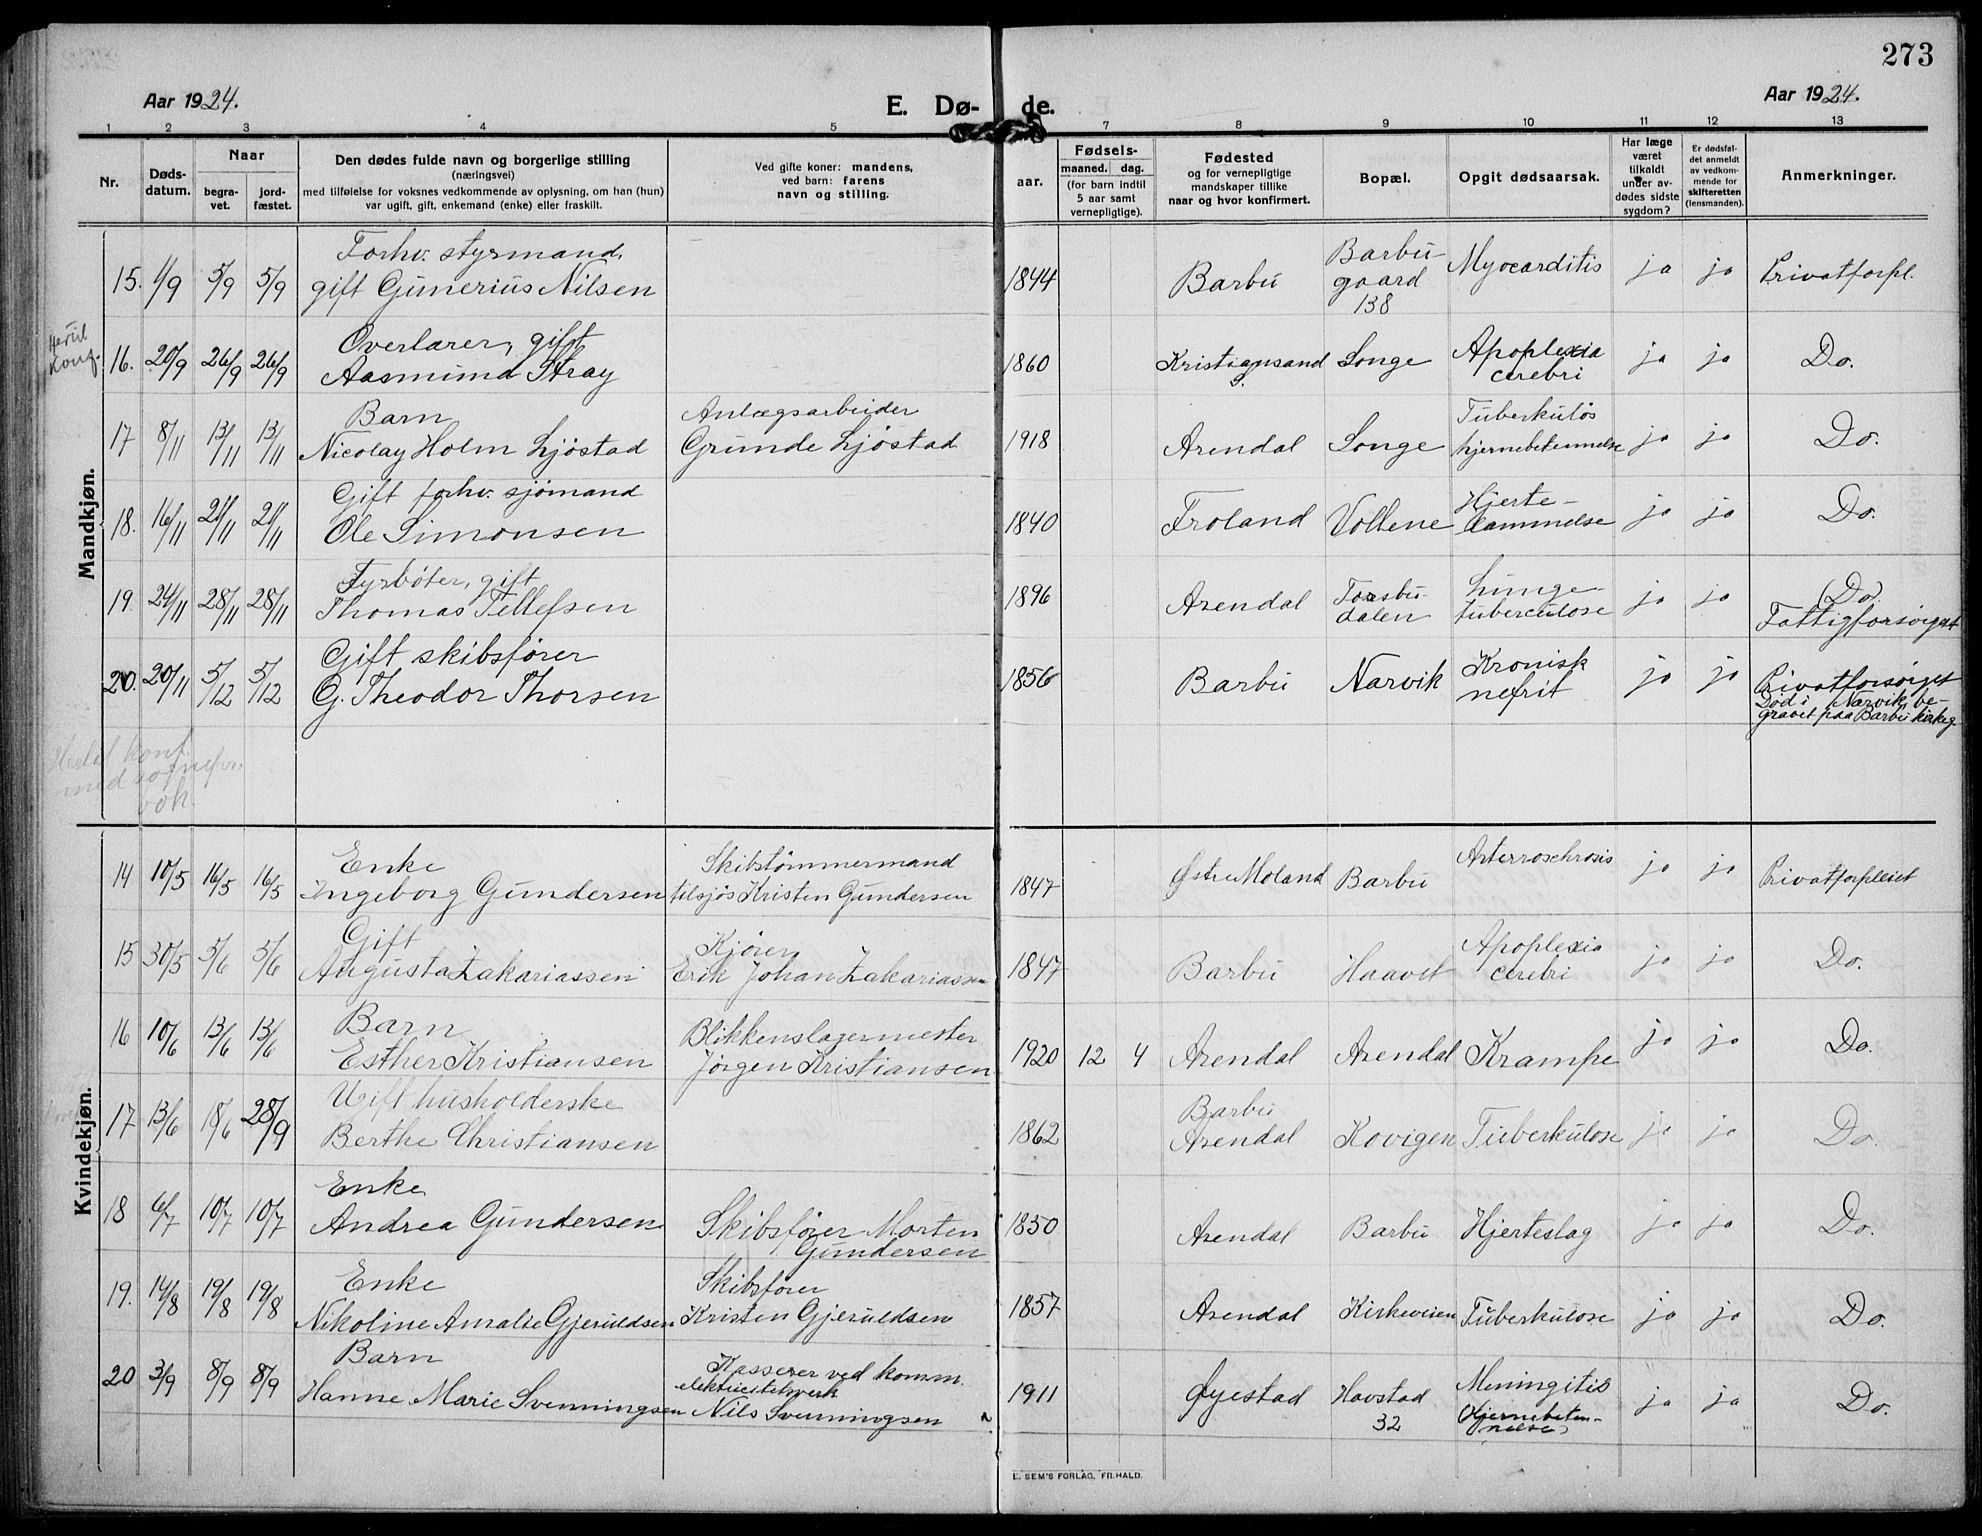 273
Aar 1924.
E. Dø- de.
Aar 1924.
1 2 3 4 5 7 8 9 10 11 12 13
Nr.
Døds-
datum.
Naar
begra-
vet.
jord-
fæstet.
Den dødes fulde navn og borgerlige stilling
(næringsvei)
med tilføielse for voksnes vedkommende av oplysning, om han (hun)
var ugift, gift, enkemand (enke) eller fraskilt.
Ved gifte koner: mandens,
ved barn: farens
navn og stilling.
aar.
Fødsels-
maaned. dag.
(for barn indtil
5 aar samt
vernepligtige).
Fødested
og for vernepligtige
mandskaper tillike
naar og hvor konfirmert.
Bopæl.
Opgit dødsaarsak.
Har læge
været
tilkaldt
under av-
dødes sidste
sygdom?
Er dødsfal-
det anmeldt
av vedkom-
mende for
skifteretten
(lensmanden).
Anmerkninger.
Mandkjøn.
Forhv. styrmand,
15. 1/9 5/9 5/9 gift Gunerius Nilsen 1844 Barbu Barbu-
gaard
138 Myocarditis ja ja Privatforpl.
Hertil
Konf.
Overlærer, gift
16. 20/9 26/9 26/9 Aasmund Stray 1860 Kristiansand
S. Songe Apoplexia
cerebri ja ja Do.
Barn Anlægsarbeider
17 8/11 13/11 13/11 Nicolay Holm Ljøstad Grunde Ljøstad 1918 Arendal Songe Tuberkuløs
hjernebetennelse ja ja Do.
Gift forhv. sjömand
18. 16/11 21/11 21/11 Ole Simonsen 1840 Froland Vollene Hjerte-
lammelse ja ja Do.
Fyrbøter, gift
19. 24/11 28/11 28/11 Thomas Tellefsen 1896 Arendal Torsbu-
dalen Lunge-
tuberculose ja ja (Do).
Fattigforsörget
Gift skibsfører
20. 20/11 5/12 5/12 G. Theodor Thorsen 1856 Barbu Narvik Kronisk
nefrit ja ja Privatforsörget
Død i Narvik, be-
gravet paa Barbu kirkeg.
Hertil konf.
Kvindekjøn.
Enke Skibstömmermand
14 10/5 16/5 16/5 Ingeborg Gundersen tilsjøs Kristen Gundersen 1847 Østre Moland Barbu Arterroschrosis ja ja Privatforpleiet
Gift Kjører
15 30/5 5/6 5/6 Augusta Zakariassen Erik Johan Zakariassen 1847 Barbu Haavet Apoplexia
cerebri ja ja Do.
Barn Blikkenslagermester
16 10/6 13/6 13/6 Esther Kristiansen Jörgen Kristiansen 1920 12 4 Arendal Arendal Krampe ja ja Do.
Ugift husholderske
17 13/6 18/6 28/9 Berthe Christiansen 1862 Barbu
Arendal Kovigen Tuberkulose ja ja Do.
Enke
18 6/7 10/7 10/7 Andrea Gundersen Skibsfører Morten
Gundersen 1850 Arendal Barbu Hjerteslag ja ja Do.
Enke Skibsfører
19. 14/8 19/8 19/8 Nikoline Amalie Gjeruldsen Kristen Gjeruldsen 1857 Arendal Kirkeveien Tuberkulose ja ja Do.
Barn Kasserer ved komm.
elektricitetsverk
20 3/9 8/9 8/9 Hanne Marie Svenningsen Nils Svenningsen 1911 Øyestad Havstad
32 Meningitis
(Hjernebeten-
nelse) ja ja Do.
E. SEM'S FORLAG, FR.HALD.